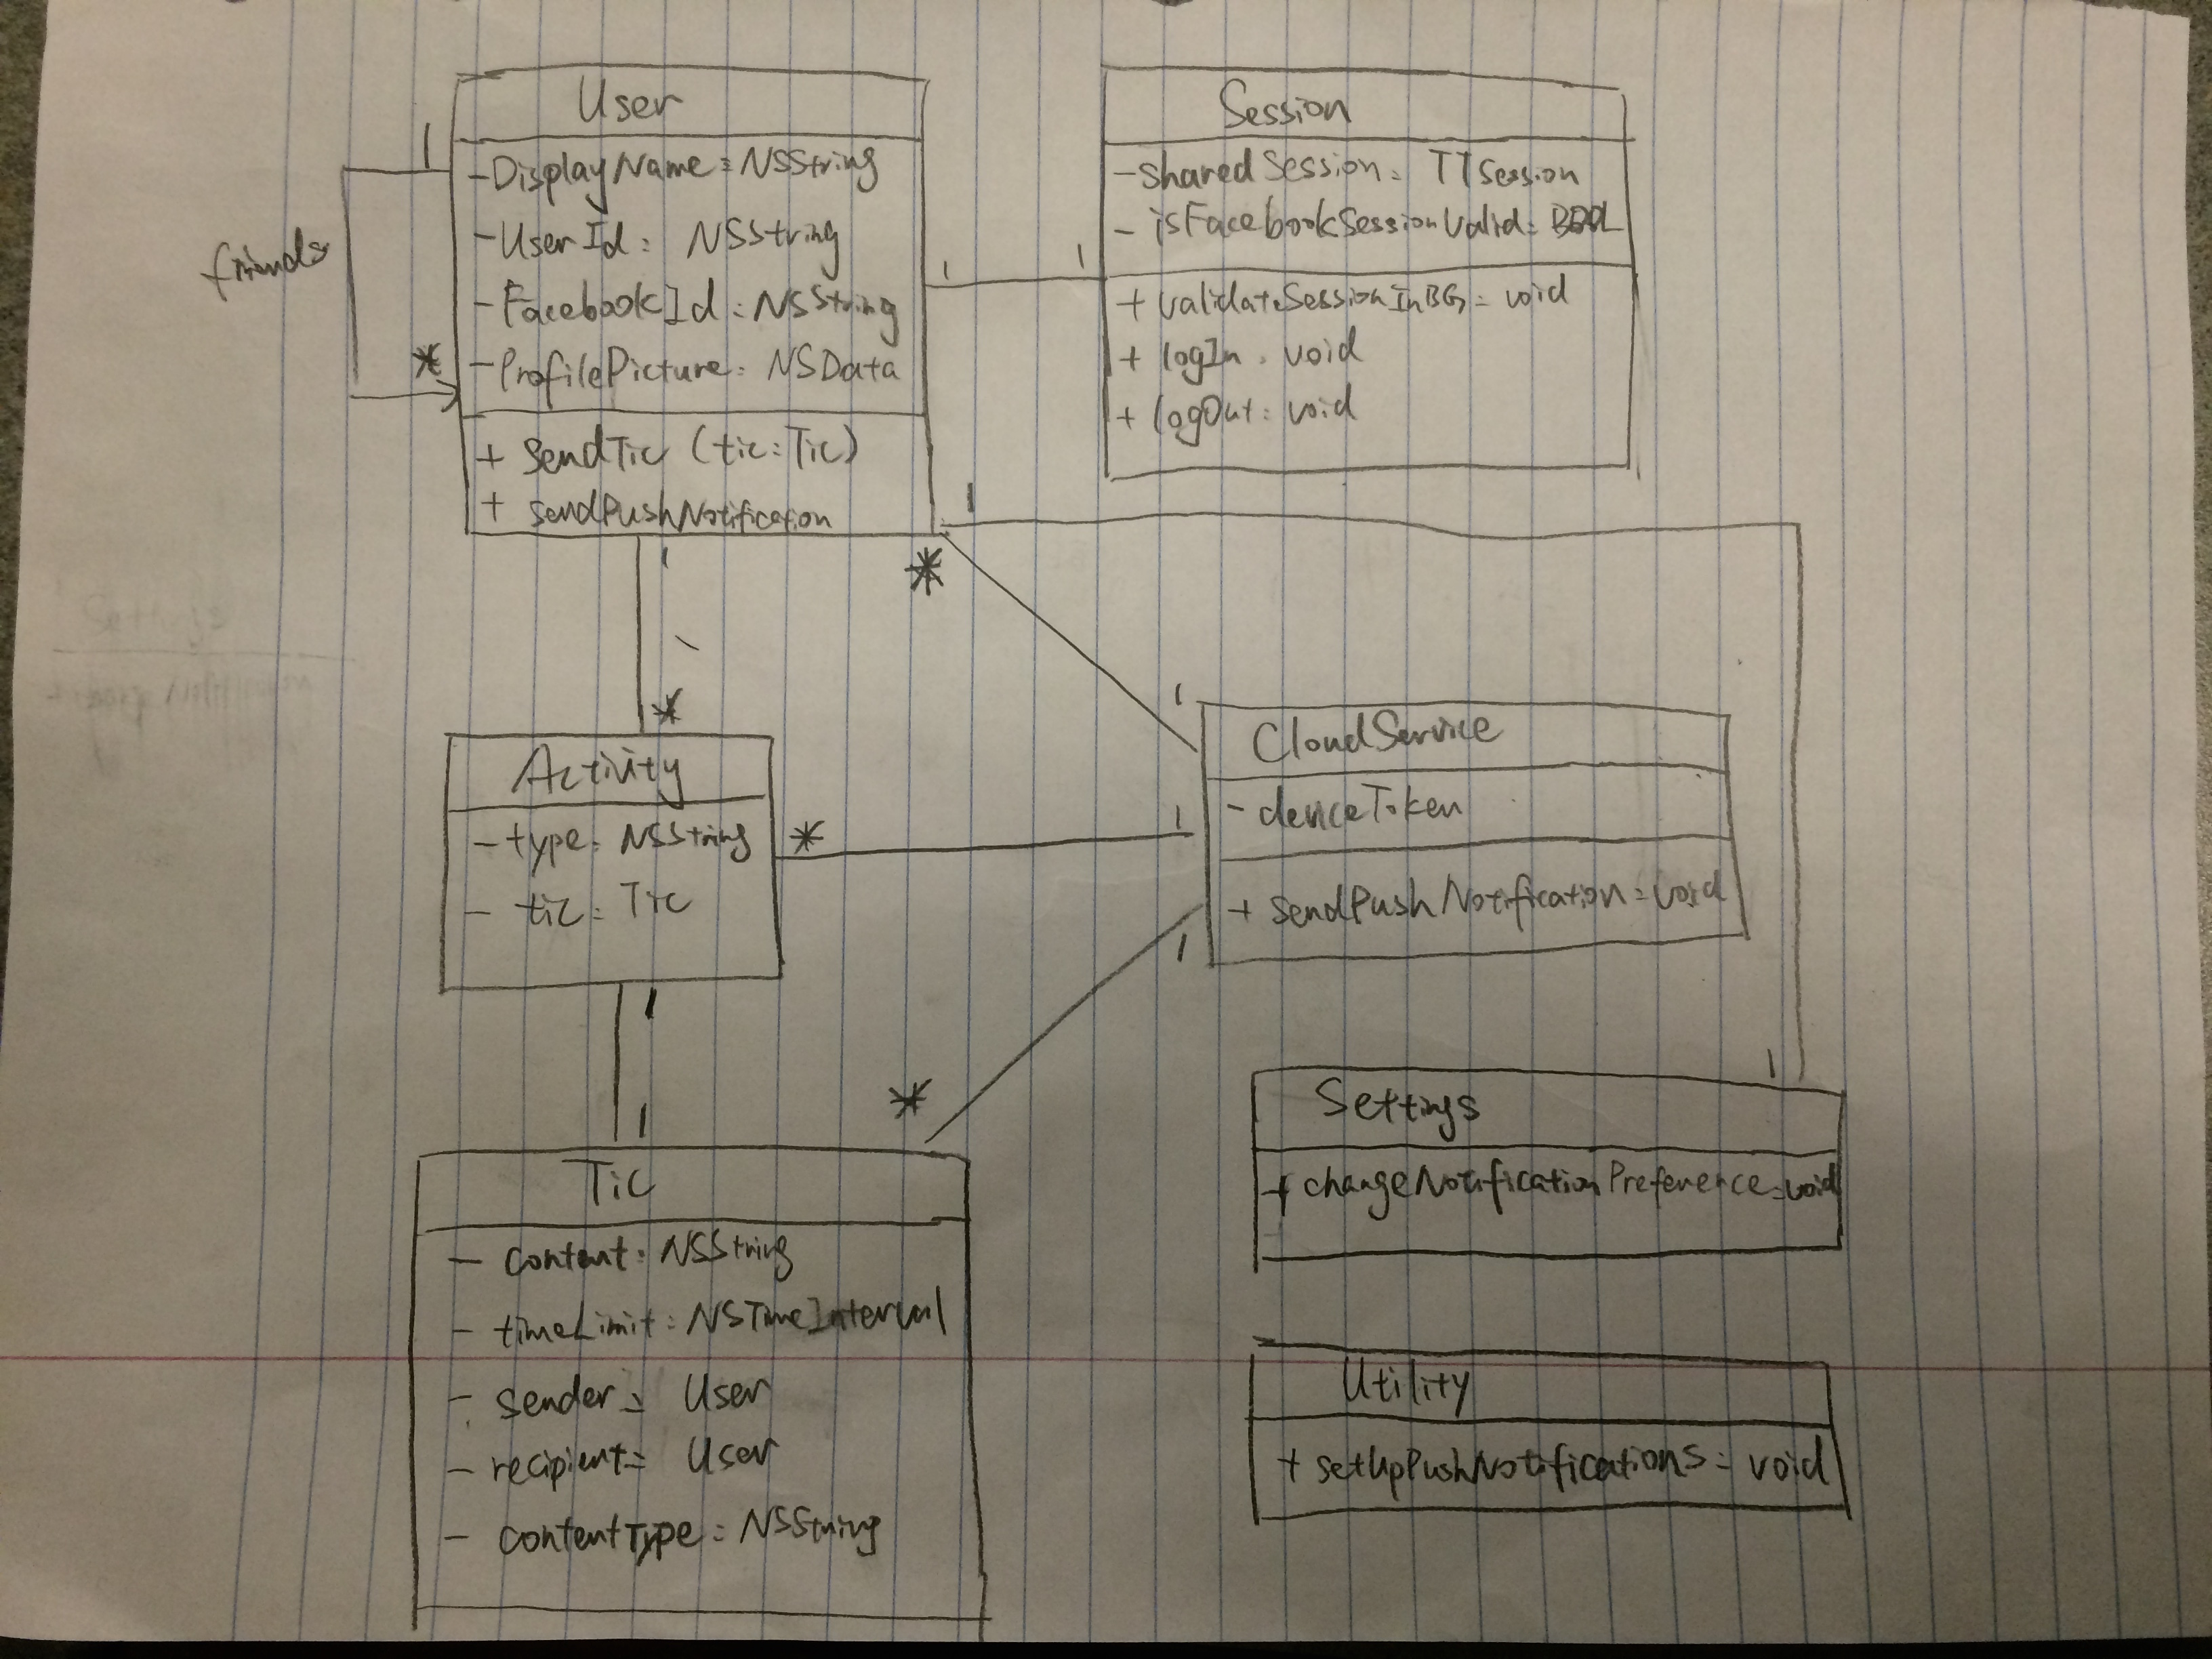 User
- DisplayName: NSString
- UserId: NSString
- FacebookId: NSString
- ProfilePicture: NSData
+ SendTic (tic: Tic)
+ sendPushNotification
1
friends
*
Session
- sharedSession: TTSession
- isFacebookSessionValid: BOOL
+ validateSessionInBG: void
+ logIn: void
+ logOut: void
1
1
1
*
1
*
1
CloudService
- deviceToken
+ sendPushNotification: void
Activity
- type: NSString
- tic: Tic
*
1
1
1
1
*
Tic
- content: NSString
- timeLimit: NSTimeInterval
- sender: User
- recipient: User
- contentType: NSString
1
Settings
+ changeNotificationPreference: void
Utility
+ setUpPushNotifications: void